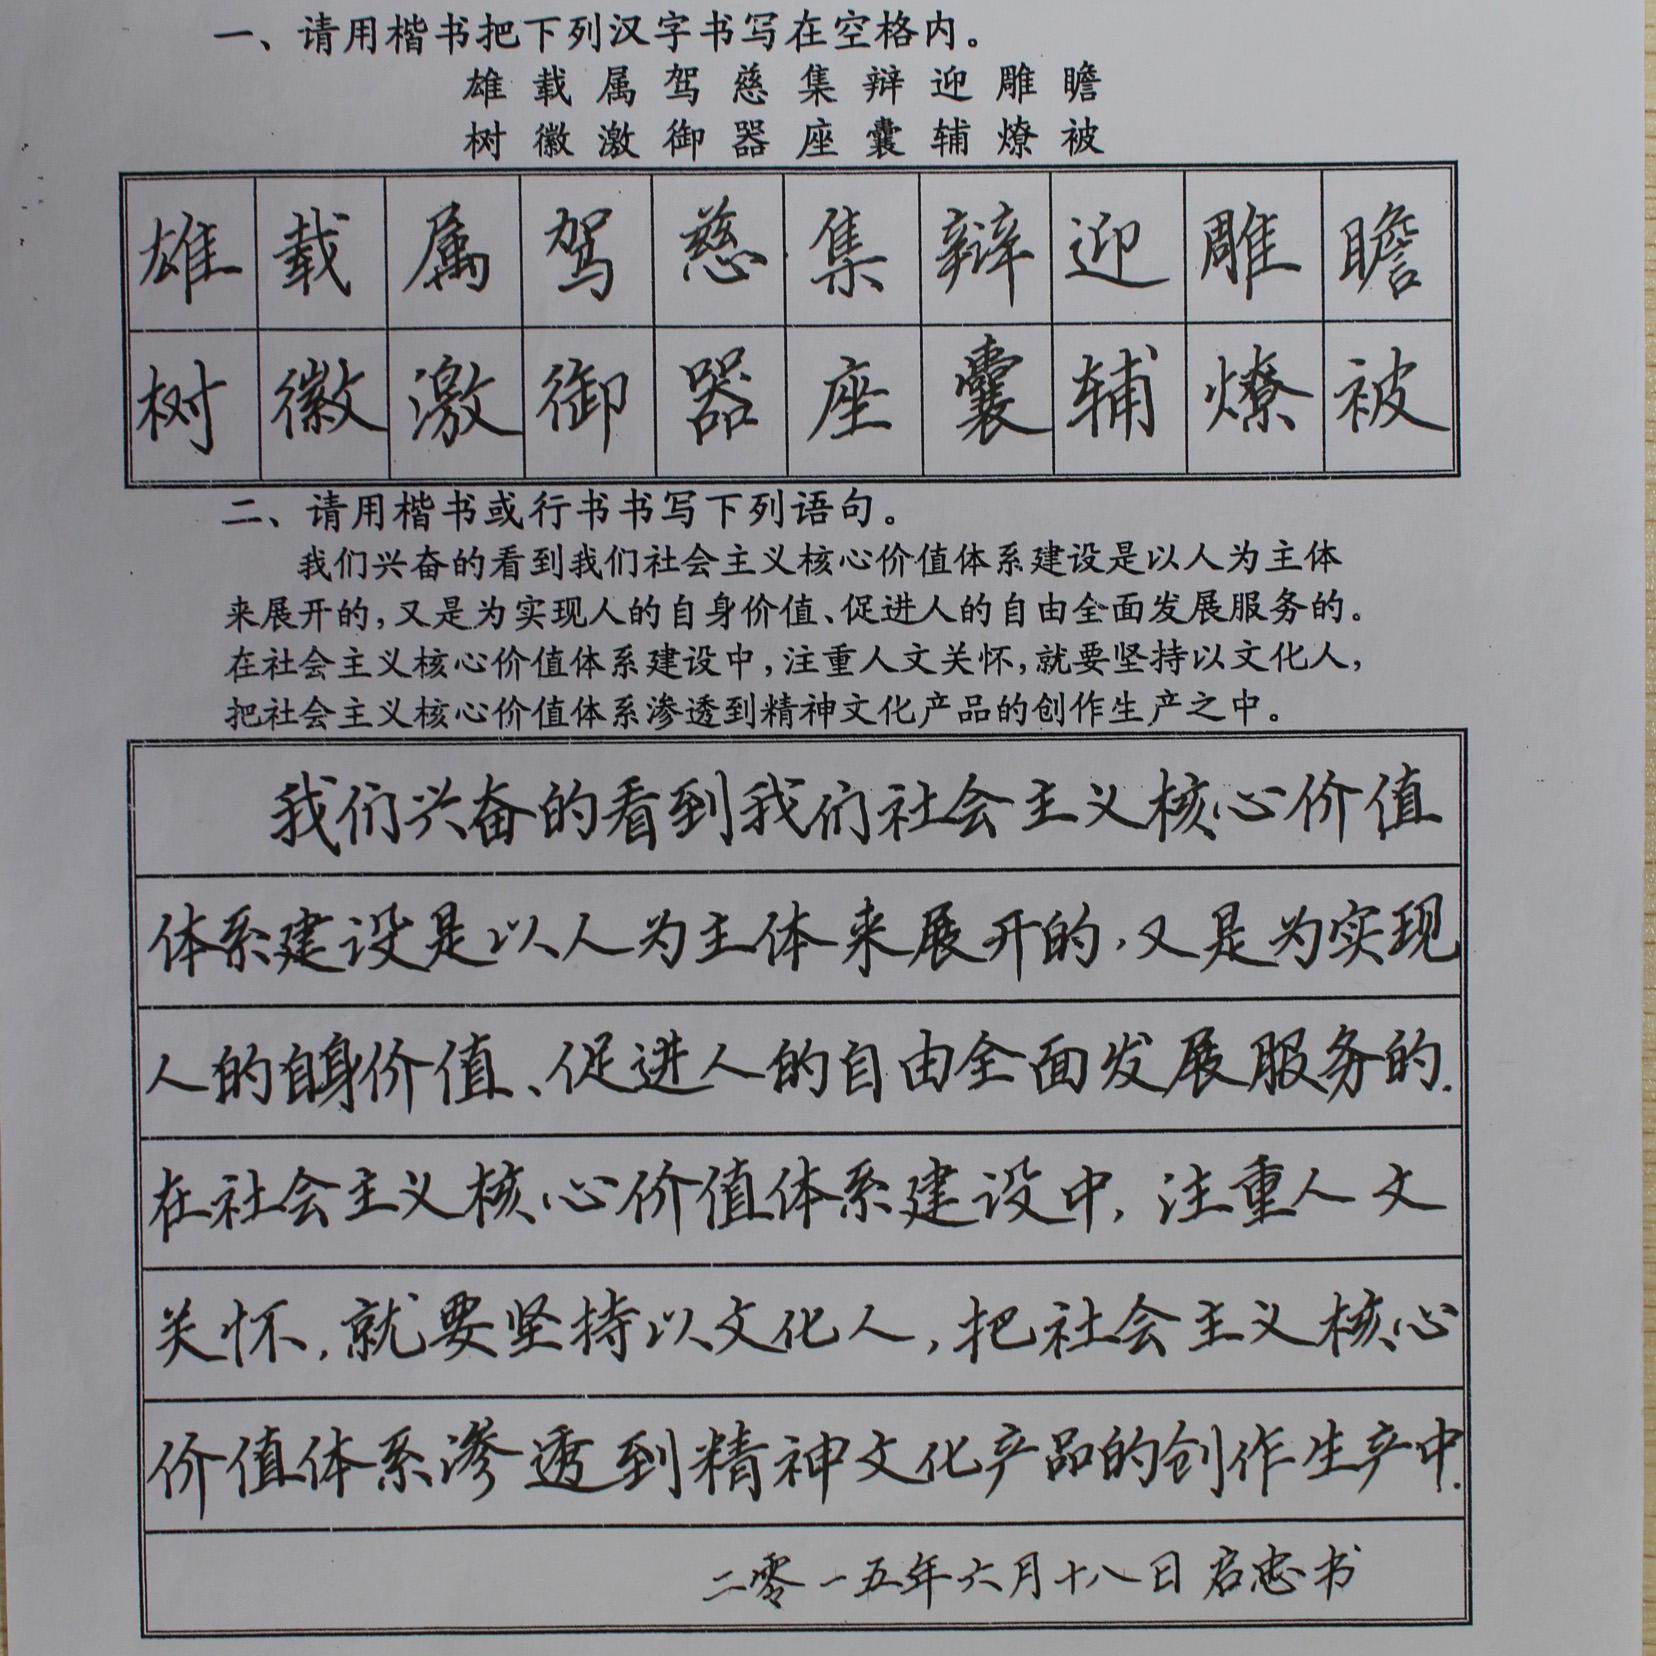 一、请用楷书把下列汉字书写在空格内。
雄 载 属 驾 慈 集 辩 迎 雕 瞻
树 徽 激 御 器 座 囊 辅 燎 被
雄 载 属 驾 慈 集 辩 迎 雕 瞻
树 徽 激 御 器 座 囊 辅 燎 被
二、请用楷书或行书书写下列语句。
我们兴奋的看到我们社会主义核心价值体系建设是以人为主体
来展开的,又是为实现人的自身价值、促进人的自由全面发展服务的。
在社会主义核心价值体系建设中,注重人文关怀,就要坚持以文化人,
把社会主义核心价值体系渗透到精神文化产品的创作生产之中。
我们兴奋的看到我们社会主义核心价值
体系建设是以人为主体来展开的,又是为实现
人的自身价值、促进人的自由全面发展服务的.
在社会主义核心价值体系建设中,注重人文
关怀,就要坚持以文化人,把社会主义核心
价值体系渗透到精神文化产品的创作生产中.
二零一五年六月十八日启忠书